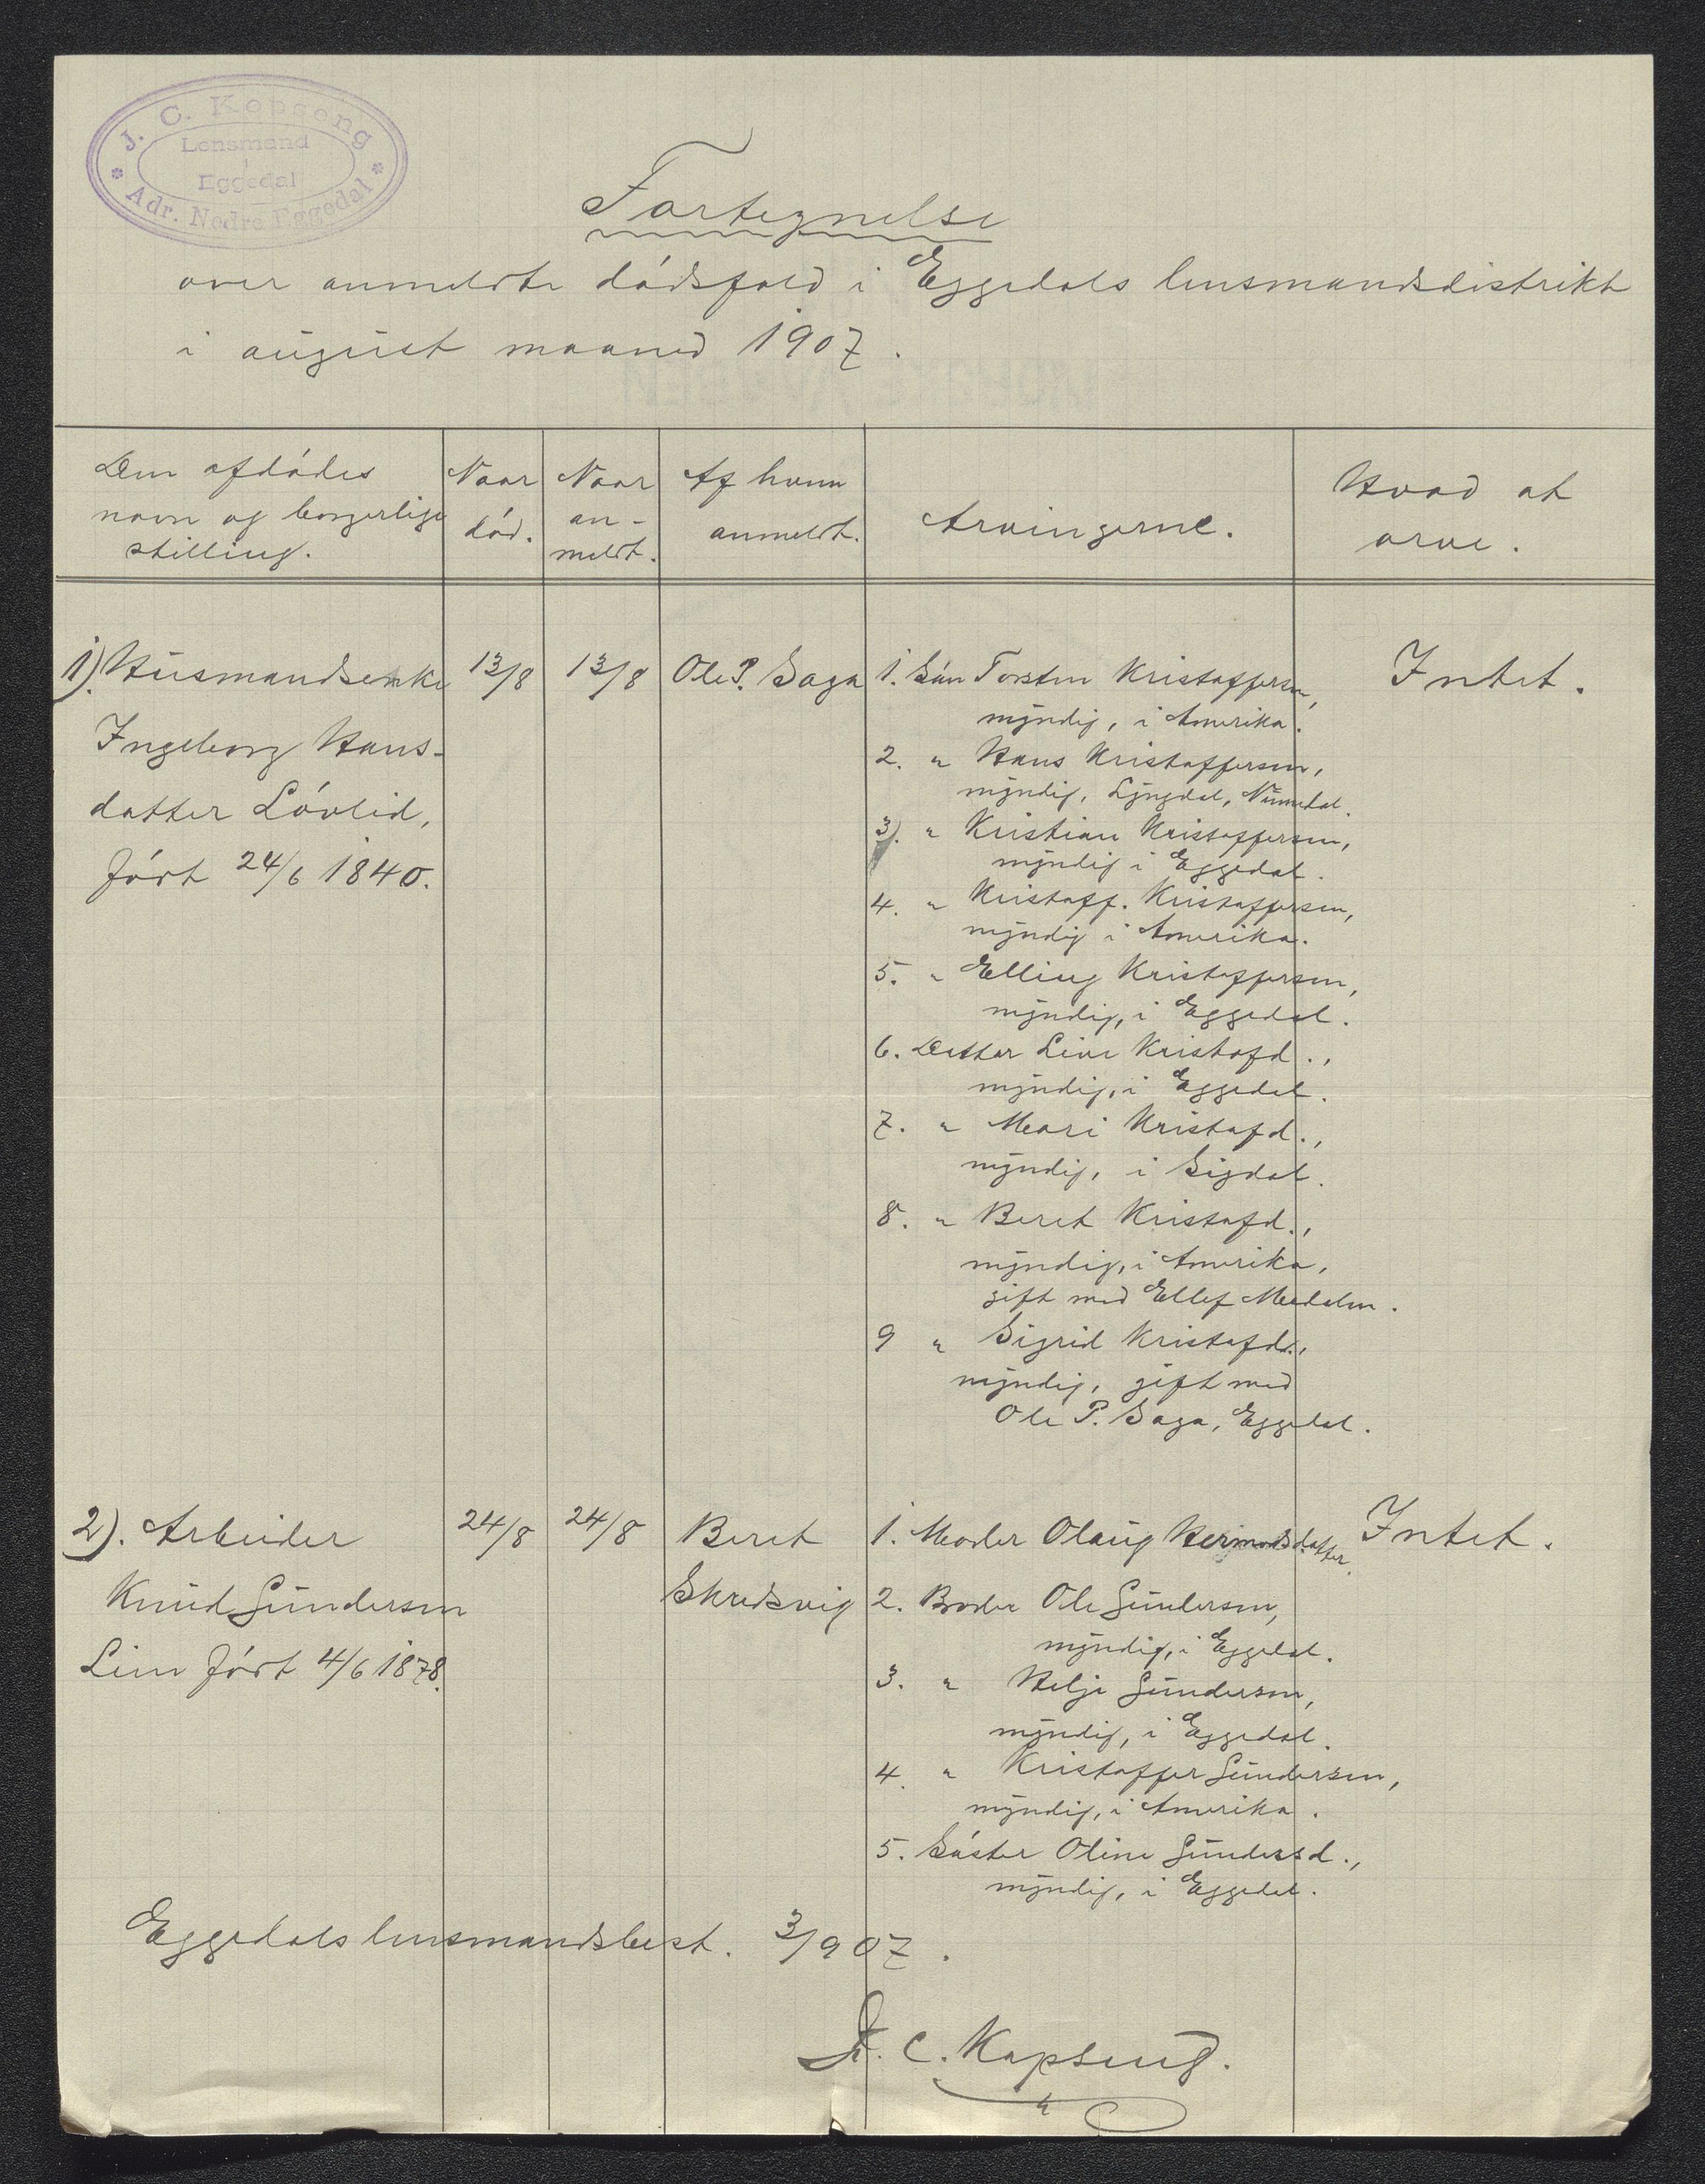 J. C. Kopseng
Lensmand
i
Eggedal
Adr. Nedre Eggedal
Fortegnelse
over anmeldte dódsfald i Eggedals lensmandsdistrikt
i august maaned 1907.
Den afdódes
navn og borgerlige
stilling.
Naar
död.
Naar
an-
meldt.
Af hvem
anmeldt.
Arvingerne.
Hvad at
arve.
1). Husmandsenke 13/8 13/8 Ole P. Saga 1. Són Torsten Kristoffersen, Intet.
myndig, i Amerika.
Ingeborg Hans-
2. " Hans Kristoffersen,
myndig, Lyngdal, Numedal.
datter Lóvlid,
3). " Kristian Kristoffersen,
myndig i Eggedal.
fórt 24/6 1840.
4. " Kristoff. Kristoffersen,
myndig i Amerika.
5. " Elling Kristoffersen,
myndig, i Eggedal.
6. Datter Live Kristofd.,
myndig, i Eggedal.
7. " Mari Kristofd.,
myndig, i Sigdal.
8. " Beret Kristofd.,
myndig, i Amerika,
gift med Ellef Medalen.
9 " Sigrid Kristofd.,
myndig, gift med
Ole P. Saga, Eggedal.
2). Arbeider 24/8 24/8 Beret 1. Moder Olaug Hermodsdatter. Intet.
Knud Gundersen Skredsvig 2. Broder Ole Gundersen,
myndig, i Eggedal.
Lien fórt 4/6 1878.
3. " Helje Gundersen,
myndig, i Eggedal.
4. " Kristoffer Gundersen,
myndig, i Amerika.
5. Sóster Oline Gundersd.,
myndig, i Eggedal.
Eggedals lensmandsbest. 3/9 07.
J. C. Kopseng.